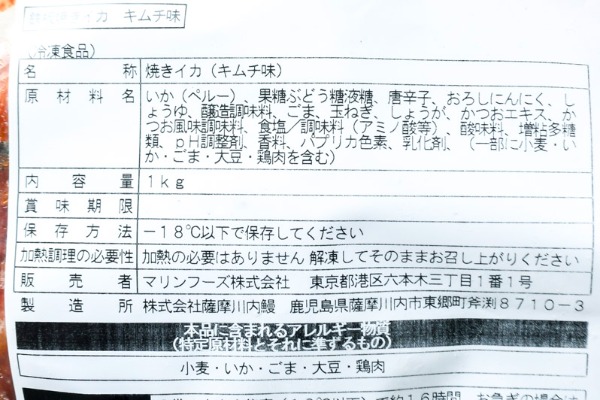 焼きイカ キムチ味
(冷凍食品)
名称 焼きイカ（キムチ味）
原材料名 いか（ペルー）、果糖ぶどう糖液糖、唐辛子、おろしにんにく、し
ょうゆ、醸造調味料、ごま、玉ねぎ、しょうが、かつおエキス、か
つお風味調味料、食塩／調味料（アミノ酸等）、酸味料、増粘多糖
類、ｐＨ調整剤、香料、パプリカ色素、乳化剤、（一部に小麦・い
か・ごま・大豆・鶏肉を含む）
内容量 １ｋｇ
賞味期限
保存方法 －１８℃以下で保存してください
加熱調理の必要性 加熱の必要はありません 解凍してそのままお召し上がりください
販売者 マリンフーズ株式会社 東京都港区六本木三丁目１番１号
製造所 株式会社薩摩川内鰻 鹿児島県薩摩川内市東郷町斧渕８７１０－３
本品に含まれるアレルギー物質
（特定原材料とそれに準ずるもの）
小麦・いか・ごま・大豆・鶏肉
℃以下）で約１６時間、お急ぎの場合は